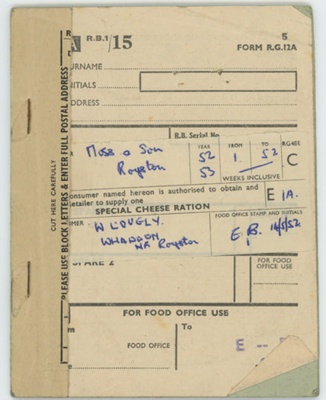 A R.B.1/15
5
FORM R.G.12A
URNAME
NITIALS
ADDRESS
CUT HERE CAREFULLY
PLEASE USE BLOCK LETTERS & ENTER FULL POSTAL ADDRESS
R.B. Serial No.
Moss & Son
Royston
YEAR FROM TO RG48E
52 1 52 C
53 WEEKS INCLUSIVE
onsumer named hereon is authorised to obtain and
etailer to supply one
E 1A.
SPECIAL CHEESE RATION
MER FOOD OFFICE STAMP AND INITIALS
W LOVELY.
WHADDON
Nr Royston
E.B. 14/5/52
SPARE 2
FOR FOOD
OFFICE USE
FOR FOOD OFFICE USE
m
To
FOOD OFFICE
E
te